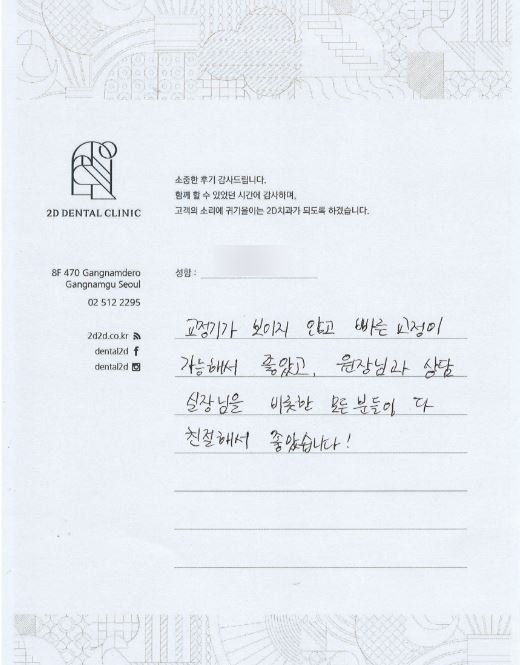 2D DENTAL CLINIC
소중한 후기 감사드립니다.
함께 할 수 있었던 시간에 감사하며,
고객의 소리에 귀기울이는 2D치과가 되도록 하겠습니다.
8F 470 Gangnamdero
Gangnamgu Seoul
02 512 2295
2d2d.co.kr
dental2d
dental2d
성함 :
교정기가 보이지 않고 빠른 교정이
가능해서 좋았고, 원장님과 상담
실장님을 비롯한 모든 분들이 다
친절해서 좋았습니다!